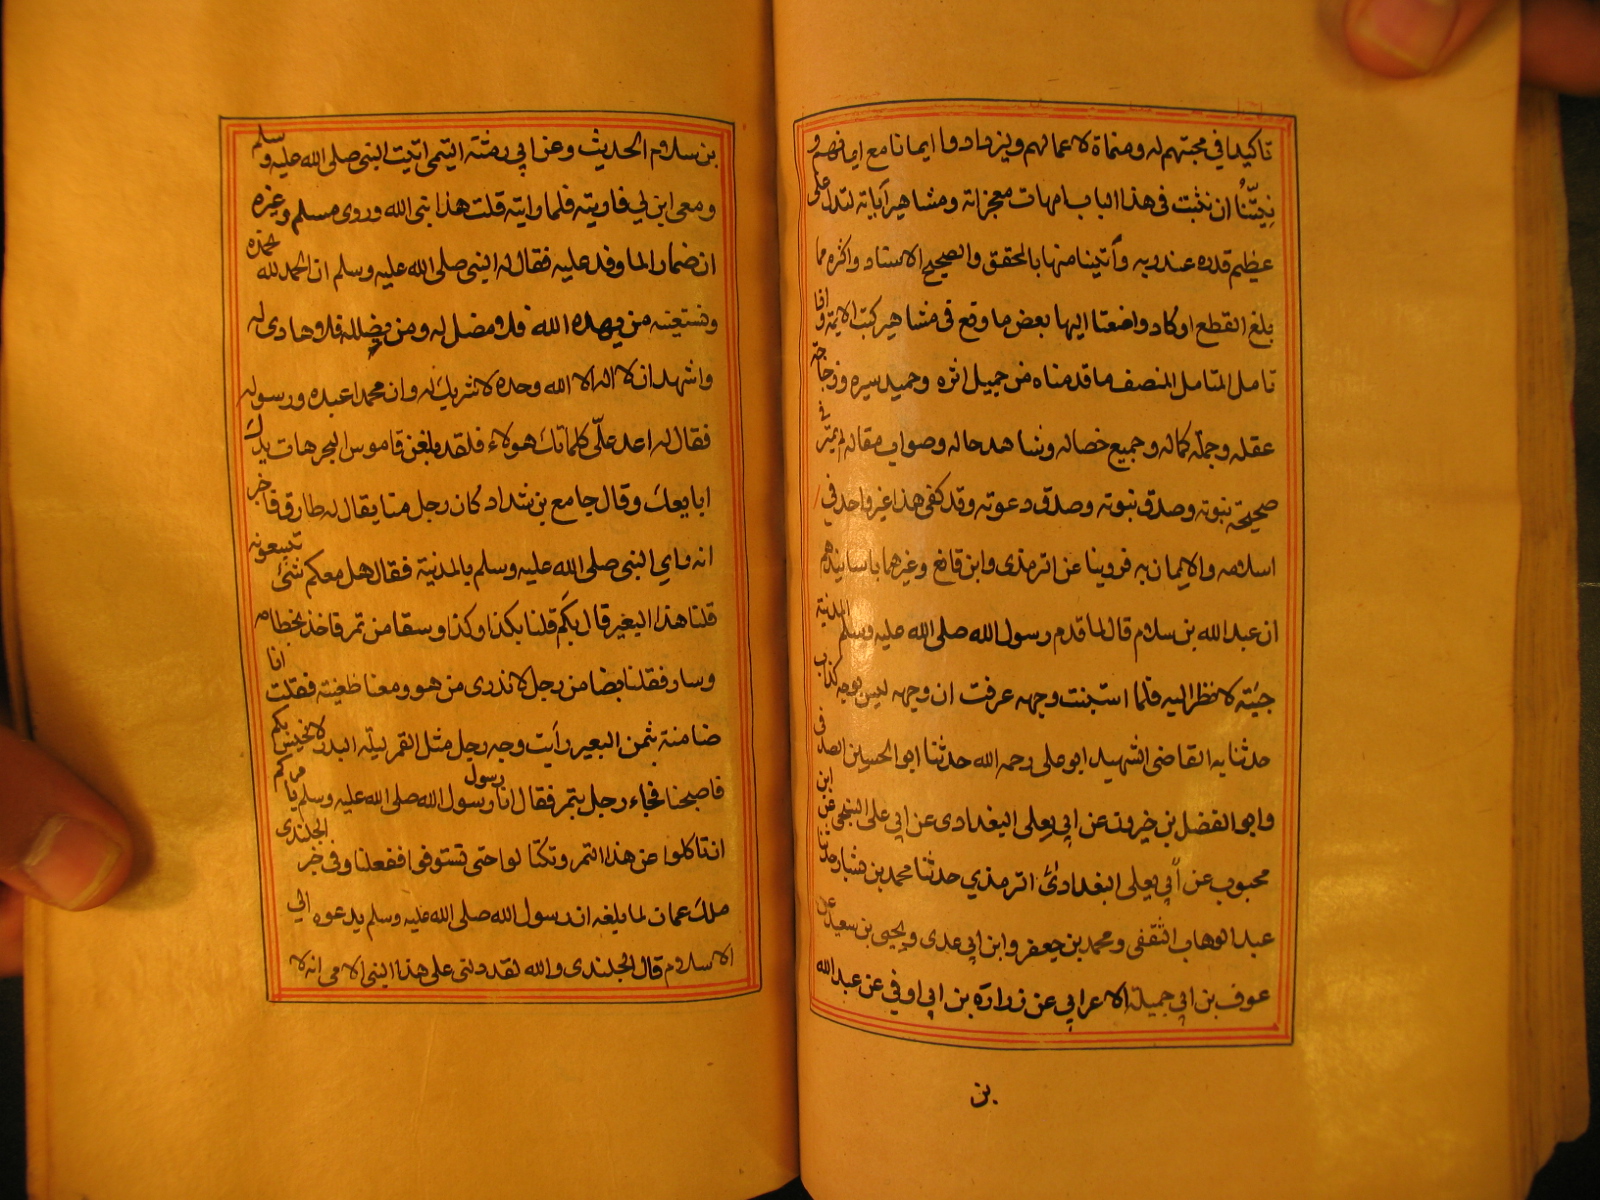 تاكيدا في محبتهم له ومنماة لاعمالهم وليزدادوا ايمانا مع ايمانهم و
نيتنا ان نثبت فى هذا الباب امهات معجزاته ومشاهير آياته لتدل على
عظيم قدره عند ربه وأتينا منها بالمحقق والصحيح الاسناد واكثره مما
بلغ القطع اوكاد واضفنا اليها بعض ما وقع فى مشاهير كتب الايمة واذا
تامل المتامل المنصف ما قدمناه من جميل اثره وحميد سيره و
عقله وجملة كماله وجميع خصاله وشاهد حاله وصواب مقاله لم يمتر في
صحيحة نبوته وصدق نبوته وصدق دعوته وقد كفى هذا غير واحد في
اسلامه والايمان به فروينا عن الترمذى وابن قانع وغيرهما باسانيدهم
ان عبد الله بن سلام قال لما قدم رسول الله صلى الله عليه وسلم المدينة
جيئته لانظر اليه فلما استبنت وجهه عرفت ان وجهه ليس بوجه كذاب
حدثنا به القاضى الشهيد ابو على رحمه الله حدثنا ابو الحسين الصدفى
وابو الفضل بن خيرون عن ابي يعلى البغدادى عن ابي على السنجي عن ابن
محبوب عن أبي يعلى البغدادى الترمذي حدثنا محمد بن بشار حدثنا
عبد الوهاب الثقفى ومحمد بن جعفر وابن ابي عدى ويحيى بن سعيد عن
عوف بن ابي جميلة الاعرابي عن زرارة بن ابي اوفي عن عبد الله
بن
بن سلام الحديث وعن ابي رمثة التيمى اتيت النبى صلى الله عليه وسلم
ومعى ابن لي فاريته فلما رايته قلت هذا نبى الله وروى مسلم وغيره
ان ضمادا لما وفد عليه فقال له النبى صلى الله عليه وسلم ان الحمد لله نحمده
ونستعينه من يهده الله فلا مضل له ومن يضلله فلا هادى له
واشهد ان لا اله الا الله وحده لا شريك له وان محمدا عبده ورسوله
فقال له اعد علّى كلماتك هولاء فلقد بلغن قاموس البحر هات يدك
ابايعك وقال جامع بن شداد كان رجل منا يقال له طارق فاخبر
انه راي النبى صلى الله عليه وسلم بالمدينة فقال هل معكم شئ تبيعونه
قلنا هذا البعير قال بكم قلنا بكذا وكذا وسقا من تمر فاخذ بخطامه
وسار فقلنا بعنا من رجل لا ندرى من هو ومعنا ظعينة فقلت انا
ضامنة بثمن البعير رأيت وجه رجل مثل القمر ليلة البدر لا يخيس بكم
فاصبحنا فجاء رجل بتمر فقال انا رسول رسول الله صلى الله عليه وسلم يامركم
ان تاكلوا من هذا التمر وتكتالوا حتى تستوفوا ففعلنا وفى خبر الجلندى
ملك عمان لما بلغه ان رسول الله صلى الله عليه وسلم يدعوه الي
الاسلام قال الجلندى والله لقد دلنى على هذا النبى الامى انه لا